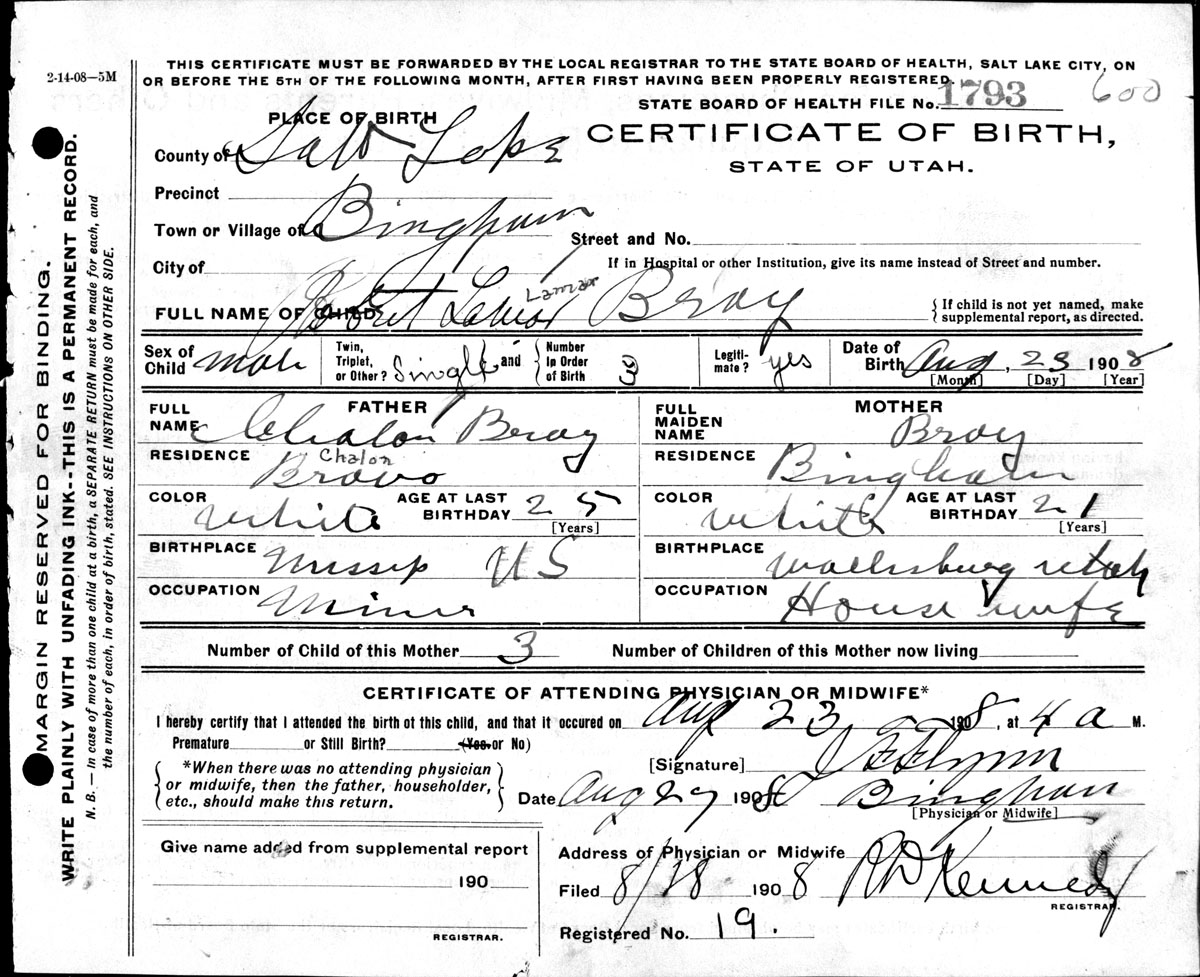 2-14-08—5M
THIS CERTIFICATE MUST BE FORWARDED BY THE LOCAL REGISTRAR TO THE STATE BOARD OF HEALTH, SALT LAKE CITY, ON
OR BEFORE THE 5TH OF THE FOLLOWING MONTH, AFTER FIRST HAVING BEEN PROPERLY REGISTERED.
STATE BOARD OF HEALTH FILE No. 1793 600
PLACE OF BIRTH
CERTIFICATE OF BIRTH,
STATE OF UTAH.
County of Salt Lake
Precinct
Town or Village of Bingham
Street and No.
City of
If in Hospital or other Institution, give its name instead of Street and number.
Lamar
FULL NAME OF CHILD Robert Lamar Bray
{If child is not yet named, make supplemental report, as directed.
Sex of Child male
Twin, Triplet, or Other? Single and {Number in Order of Birth
Legitimate? yes
Date of Birth Aug, 23 1908
[Month] [Day] [Year]
FATHER
FULL NAME Chalon Bray
Chalon
RESIDENCE
COLOR White
AGE AT LAST BIRTHDAY 25
[Years]
BIRTHPLACE Missip US
OCCUPATION Miner
MOTHER
FULL MAIDEN NAME Bray
RESIDENCE Bingham
COLOR White
AGE AT LAST BIRTHDAY 21
[Years]
BIRTHPLACE Wallsburg Utah
OCCUPATION House wife
Number of Child of this Mother 3 Number of Children of this Mother now living
CERTIFICATE OF ATTENDING PHYSICIAN OR MIDWIFE*
I hereby certify that I attended the birth of this child, and that it occured on Aug 23 1908, at 4 a M.
Premature or Still Birth? (Yes or No)
{*When there was no attending physician
or midwife, then the father, householder,
etc., should make this return.}
[Signature] Flynn
Date Aug 27 1908 Bingham
[Physician or Midwife]
Give name added from supplemental report
190
REGISTRAR.
Address of Physician or Midwife
Filed 8/28 1908 RD Kennedy
REGISTRAR.
Registered No. 19.
MARGIN RESERVED FOR BINDING.
WRITE PLAINLY WITH UNFADING INK--THIS IS A PERMANENT RECORD.
N. B.—In case of more than one child at a birth, a SEPARATE RETURN must be made for each, and
the number of each, in order of birth, stated. SEE INSTRUCTIONS ON OTHER SIDE.